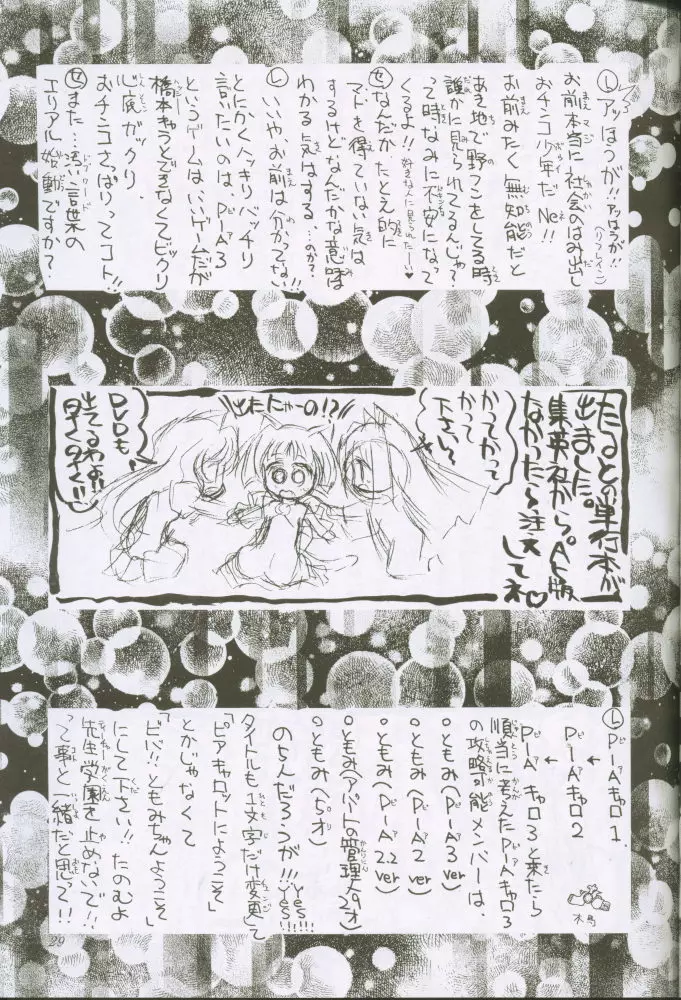 Ⓛアッはうが!!アッはうが!!(リフレイン)
お前本当に社会のはみ出し
おチンコ少年だNe!!
お前みたく無知能だと
あき地で野グソをしてる時
誰かに見られてるんじゃ?
って時なみに不安になって
くるよ!!好きな人に見られたー♥
Ⓢなんだか、たとえ的に
マトを得ていない気は
するけどなんだかな意味は
わかる気はする…のか?
Ⓛいいや、お前は分かってない
とにかくハッキリバッチリ
言いたいのは、P-A3
というゲームは、いいゲームだが
橋本キャラとできなくてビックリ
心底ガックリ、
おチンコさっぱりってコト!!
Ⓢまた…汚い言葉の
エリアル始動ですか?
たるとの単行本が
出ました。
集英社から。A5版
なかったら注文
してネ♡
かってかって
かって
下さい〜
出たにゃーの!?
DVDも
出てるわよ!!
早く早く!!
ⓁP-Aキャロ1.
↓
P-Aキャロ2
↓
P-Aキャロ3と来たら
順当に考えたP-Aキャロ3
の攻略可能メンバーは、
○ともみ(P-A3ver)
○ともみ(P-A2ver)
○ともみ(P-A2.2ver)
○ともみ(アパートの管理人29才)
○ともみ(5才)
のちんだろうが!!!yes!!!yes!!!
タイトルも1文字だけ変更て
「ピアキャロットにようこそ」
とかじゃなくて
「ピバ!!ともみちゃんようこそ」
にして下さい!!たのむよ
先生学園を止めないで!!
って事と一緒だと思って!!
29